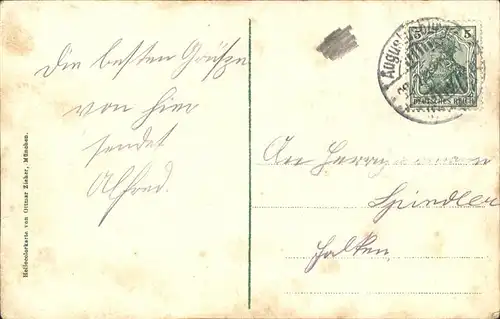 Die besten Grüsse
von hier
sendet
Alfred.
Heliocolorkarte von Ottmar Zieher, München.
5
DEUTSCHES REICH
An Herrn
Spindler
Falken